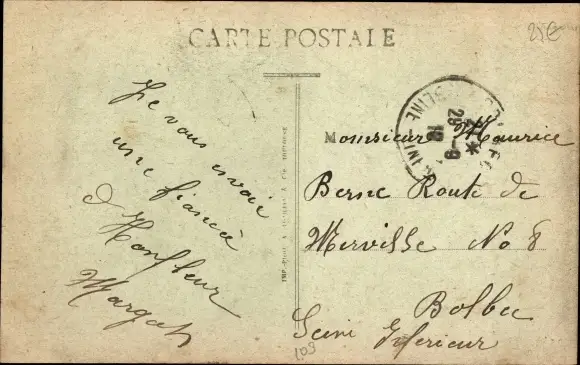 25€
CARTE POSTALE
Je vous envoie
une fiancée
d Honfleur
Margot
Monsieur Maurice
Berne Route de
Merville No 8
Bolbec
Seine Inferieur
103
29-9